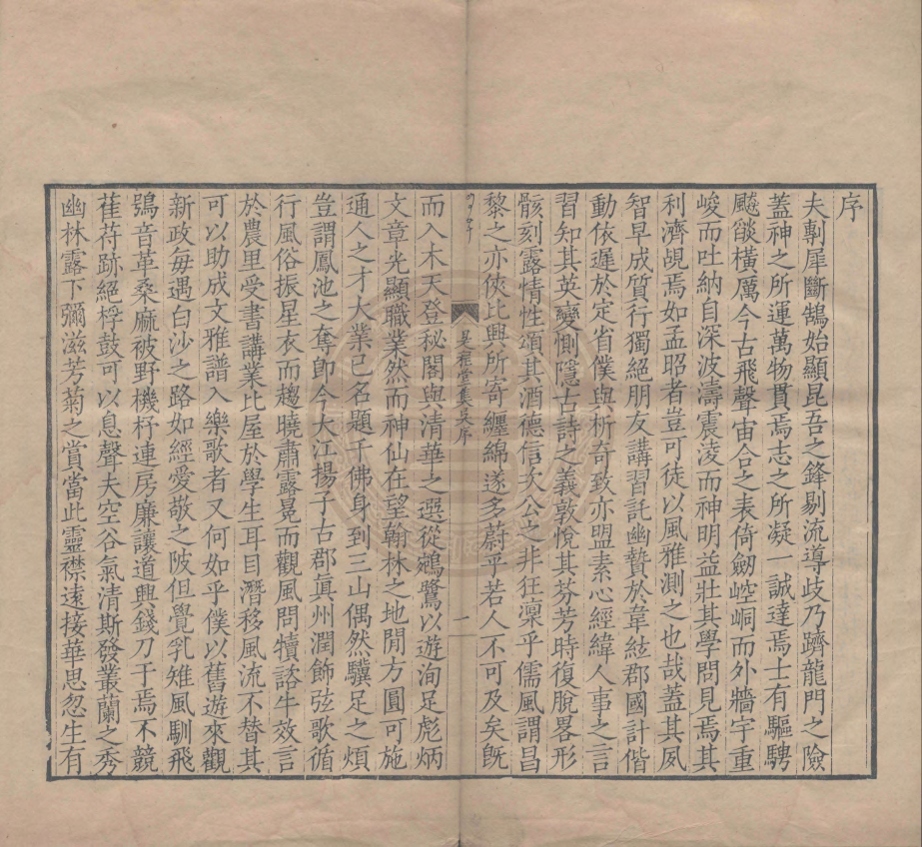 序
夫剸犀斷鵠始顯昆吾之鋒剔流導歧乃躋龍門之險
蓋神之所運萬物貫焉志之所凝一誠達焉士有驅騁
飈燄橫厲今古飛聲宙合之表倚劒崆峒而外牆宇重
峻而吐納自深波濤震淩而神明益壯其學問見焉其
利濟覘焉如孟昭者豈可徒以風雅測之也哉蓋其夙
智早成質行獨絕朋友講習託幽贄於韋絃郡國計偕
動依遲於定省僕與析奇致亦盟素心經緯人事之言
習知其英變惻隱古詩之義敦悅其芬芳時復脫畧形
骸刻露情性頌其酒德信次公之非狂澟乎儒風謂昌
黎之亦俠比興所寄纏綿遂多蔚乎若人不可及矣旣
是程堂集吳序
一
而入木天登秘閣與清華之選從鵷鷺以遊洵足彪炳
文章光顯職業然而神仙在望翰林之地閒方圓可施
通人之才大業已名題千佛身到三山偶然驥足之煩
豈謂鳳池之奪卽今大江揚子古郡眞州潤飾弦歌循
行風俗振星衣而趨曉肅露冕而觀風問犢諮牛效言
於農里受書講業比屋於學生耳目潛移風流不替其
可以助成文雅譜入樂歌者又何如乎僕以舊遊來觀
新政每遇白沙之路如經愛敬之陂但覺乳雉風馴飛
鴞音革桑麻被野機杼連房廉讓道興錢刀于焉不競
萑苻跡絕桴鼓可以息聲夫空谷氣清斯發叢蘭之秀
幽林露下彌滋芳菊之賞當此靈襟遠接華思忽生有